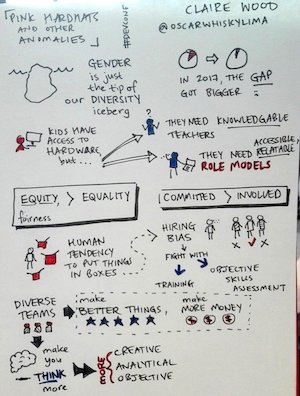 "PINK HARDHATS
AND OTHER
ANOMALIES"
#DEVCONF
CLAIRE WOOD
@OSCARWHISKYLIMA
GENDER
is just
the tip of
our DIVERSITY
iceberg
IN 2017, THE GAP
GOT BIGGER :
KIDS HAVE
ACCESS TO
HARDWARE,
but ...
THEY NEED KNOWLEDGABLE
TEACHERS
ACCESSIBLE,
RELATABLE
THEY NEED
ROLE MODELS
EQUITY > EQUALITY
fairness
COMMITTED > INVOLVED
HUMAN
TENDENCY
TO PUT THINGS
IN BOXES
HIRING
BIAS
FIGHT WITH
TRAINING
OBJECTIVE
SKILLS
ASSESSMENT
X ✓ X
DIVERSE
TEAMS
make
BETTER THINGS,
make
MORE MONEY
$ $ $
make
you
THINK
more
MORE
CREATIVE
ANALYTICAL
OBJECTIVE